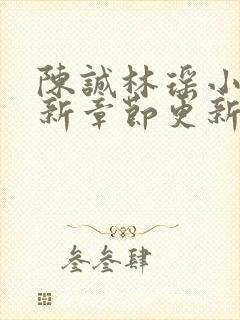 陳誠林瑶小
新章節更新
叁叁肆